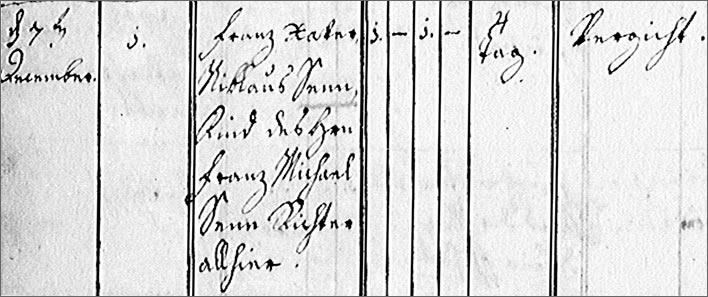 d 7t
December.
1.
Franz Xaver,
Niklaus Senn,
Kind des Hrn
Franz Michael
Senn Richter
allhier.
1. — 1. —
4
Tag.
Vergicht.